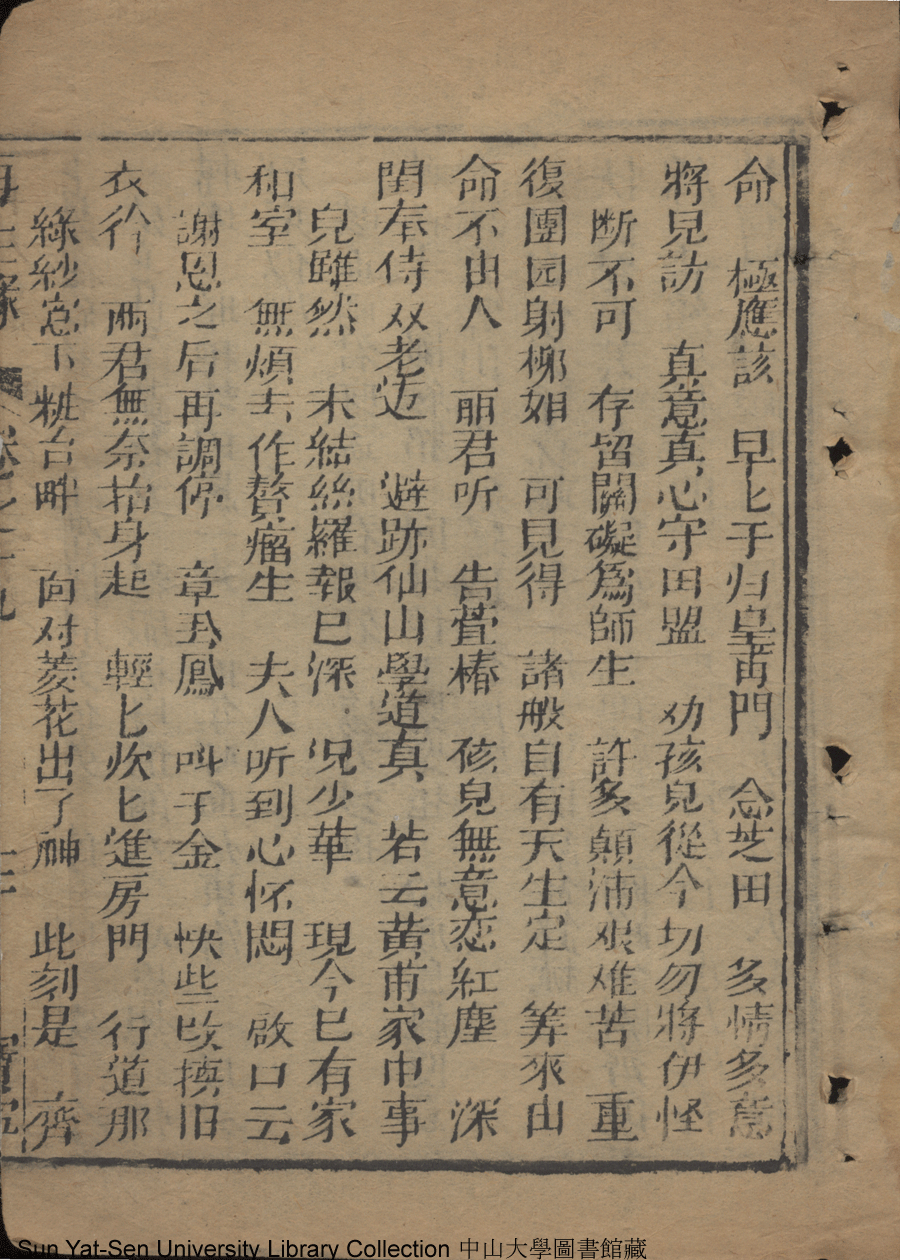 命 極應該 早匕于归皇甫門 念芝田 多情多意
將見訪 真意真心守田盟 劝孩兒從今切勿將伊怪
断不可 存留關礙爲師生 許多顛沛艰难苦 重
復團园射柳姻 可見得 諸般自有天生定 筭來由
命不由人 丽君听 告萱椿 孩兒無意恋紅塵 深
閨奉侍双老迈 避跡仙山學道真 若云黄甫家中事
兒雖然 未結絲羅報已深 况少華 現今已有家
和室 無煩去作贅瘤生 夫人听到心怀悶 啟口云
謝恩之后再調停 章丑鳳 叫于金 快些改換旧
衣衿 兩君無奈抬身起 輕匕欢匕進房門 行道那
綠紗窓下粧台畔 面对菱花出了神 此刻是 齊
卷之十九
Sun Yat-Sen University Library Collection 中山大學圖書館藏